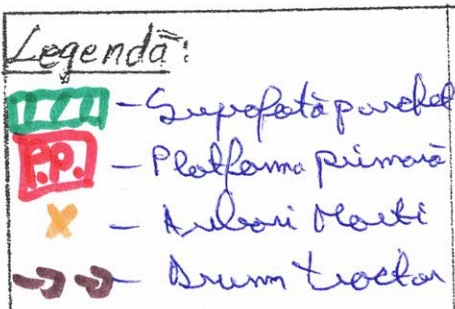 Legendă:
- Suprafată parchet
P.P. - Platforma primară
x - Arbori Morti
- Drum tractor